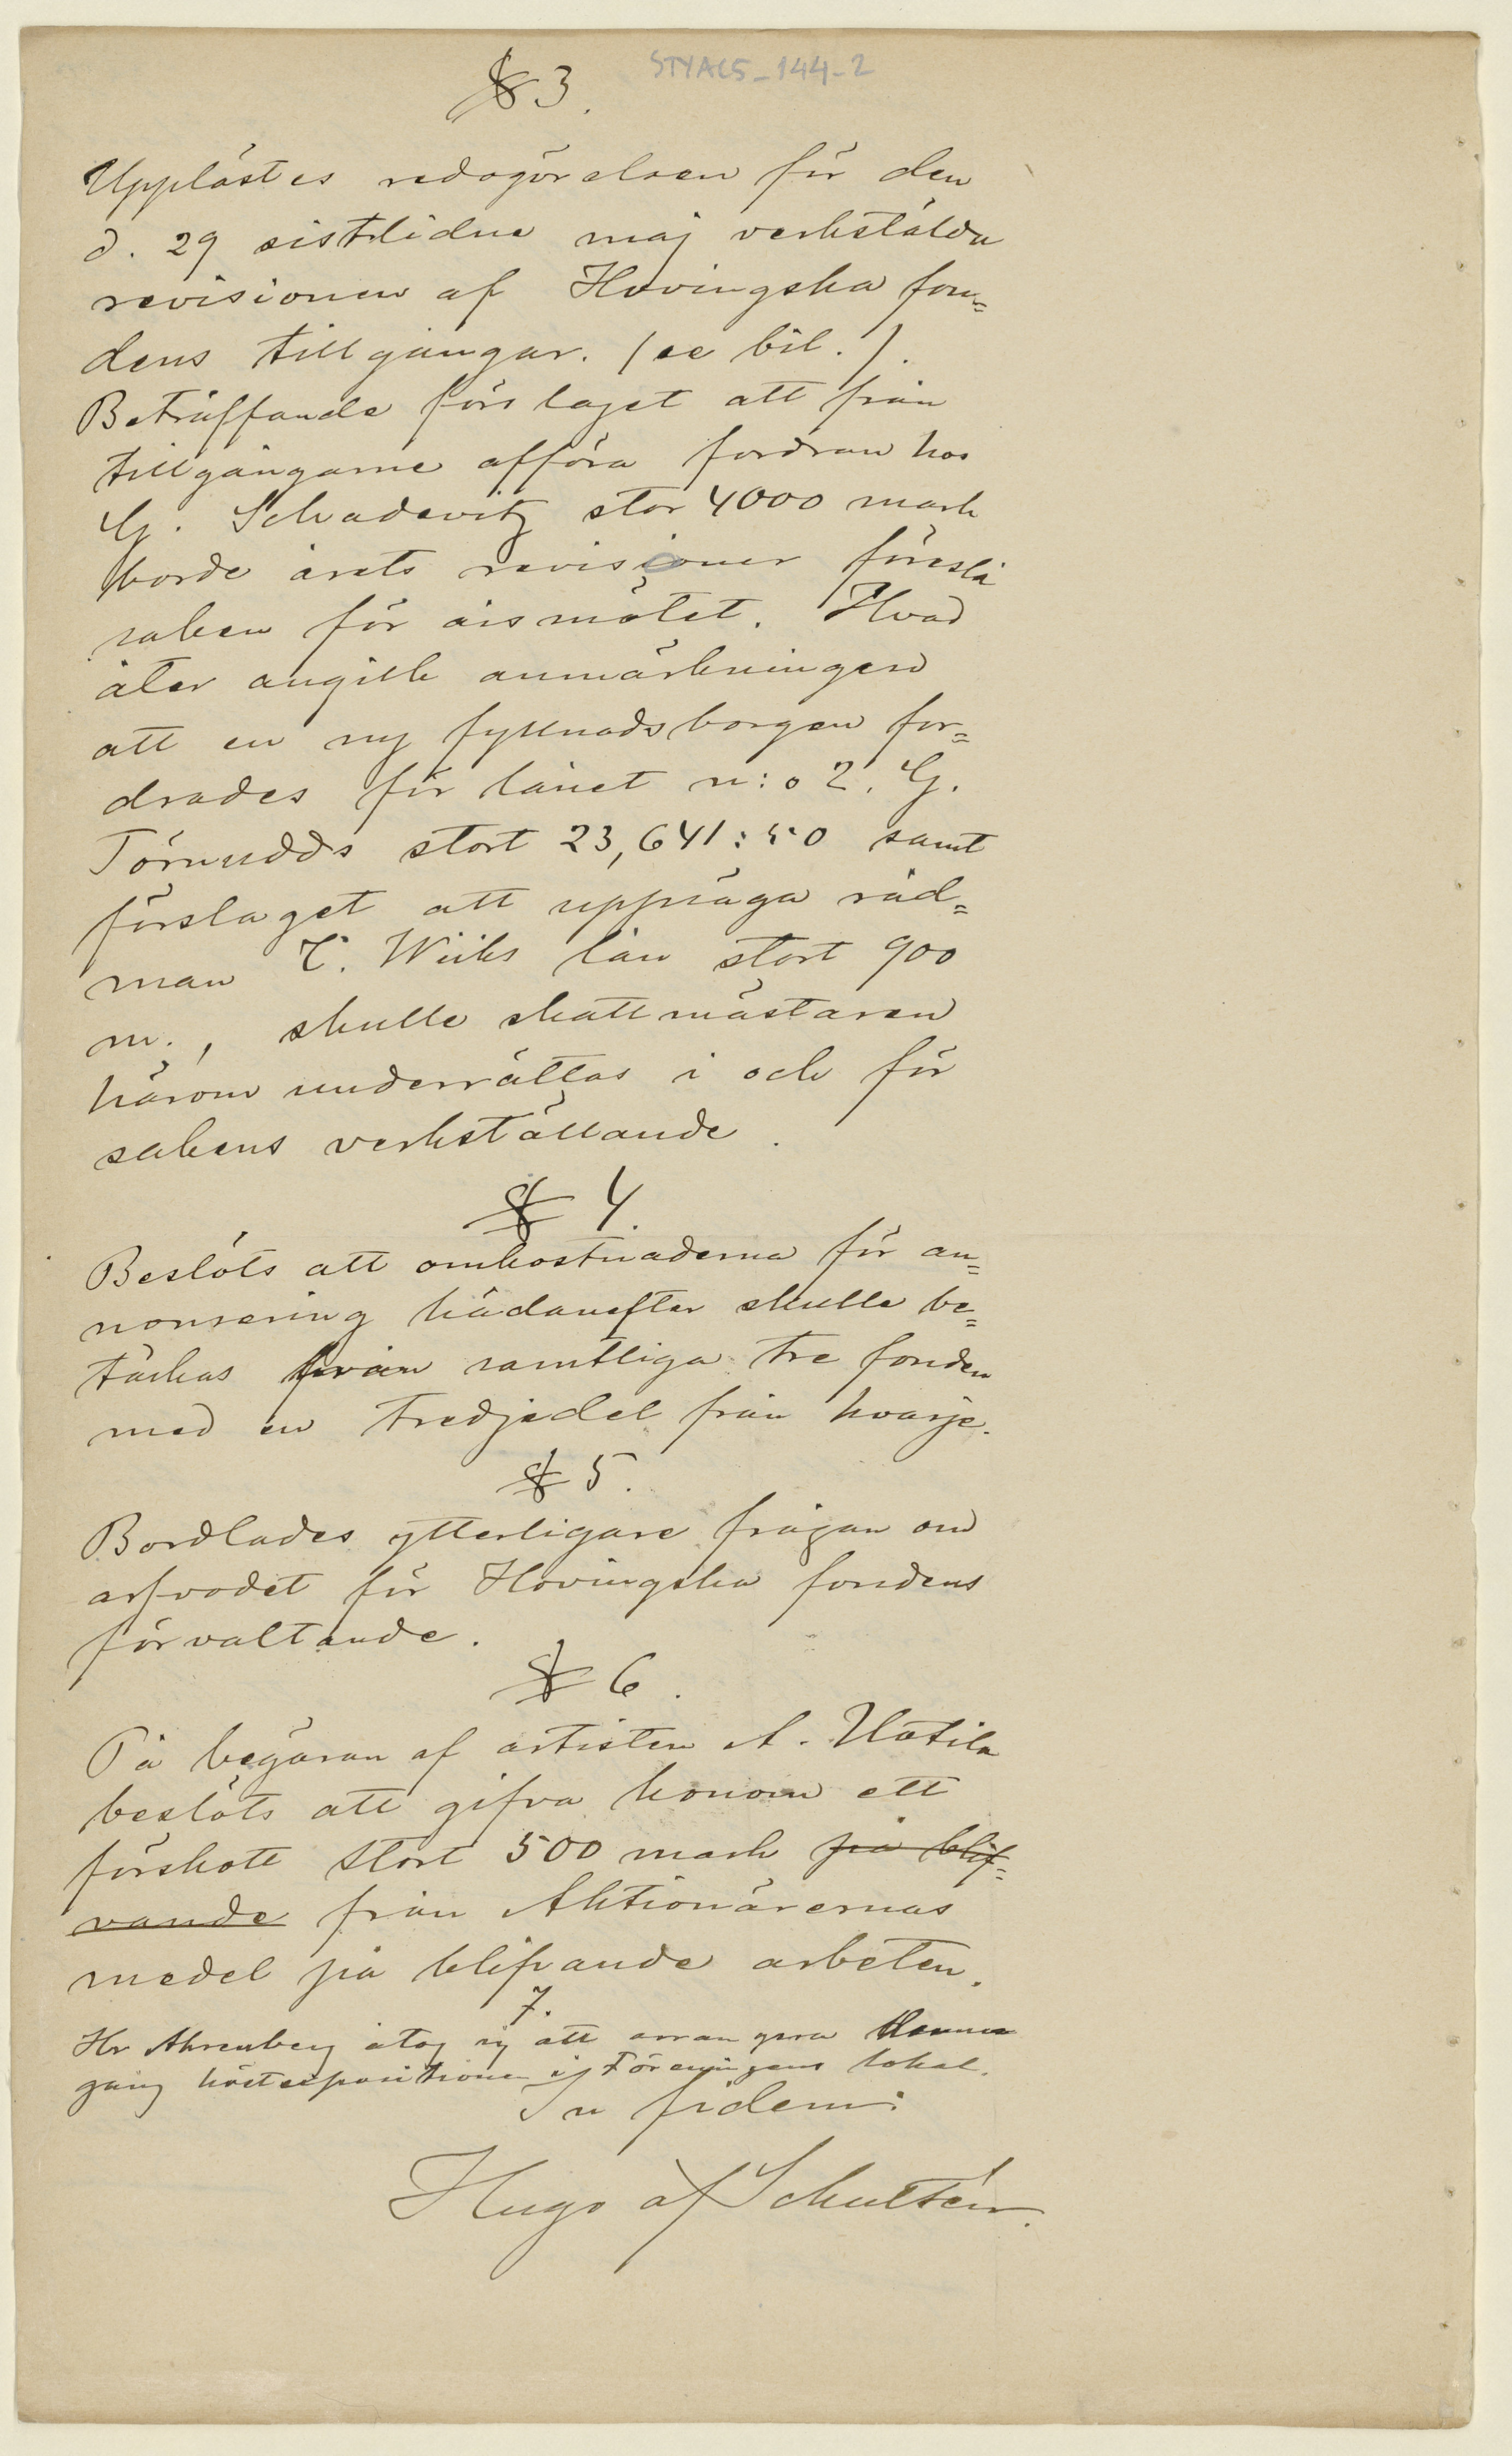 STYAL5-144-2
§ 3.
Upplästes redogörelsen för den
d. 29 sistlidne maj verkstälda
revisionen af Hovingska fon=
dens tillgångar. (se bil.).
Beträffande förslaget att från
tillgångarne afföra fordran hos
G. Schadevitz stor 4000 mark
borde årets revisioner föreslå
saken för årsmötet. Hvad
åter angick anmärkningen
att en ny fyllnadsborgen for=
drades för lånet n:o 2. G.
Törnudds stort 23,641:50 samt
förslaget att uppsäga råd=
man C. Wiiks lån stort 900
m., skulle skattmästaren
härom underrättas i och för
sakens verkställande.
§ 4.
Beslöts att omkostnaderna för an=
nonsering hädanefter skulle be=
täckas från samtliga tre fonden
med en tredjedel från hvarje.
§ 5.
Bordlades ytterligare frågan om
arfvodet för Hovingska fondens
förvaltande.
§ 6.
På begäran af artisten A. Uotila
beslöts att gifva honom ett
förskott stort 500 mark på blif=
vande från Aktionärernas
medel på blifvande arbeten.
7.
Hr Ahrenberg åtog sig att arrangera denna
gång höstexpositionen i Föreningens lokal.
In fidem:
Hugo af Schultén.